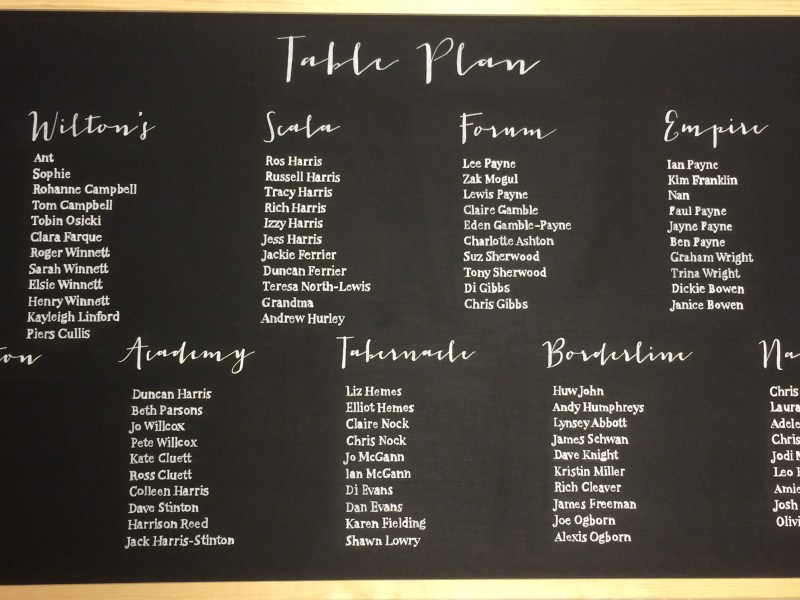 Table Plan
Wilton's
Ant
Sophie
Rohanne Campbell
Tom Campbell
Tobin Osicki
Clara Farque
Roger Winnett
Sarah Winnett
Elsie Winnett
Henry Winnett
Kayleigh Linford
Piers Cullis
Scala
Ros Harris
Russell Harris
Tracy Harris
Rich Harris
Izzy Harris
Jess Harris
Jackie Ferrier
Duncan Ferrier
Teresa North-Lewis
Grandma
Andrew Hurley
Forum
Lee Payne
Zak Mogul
Lewis Payne
Claire Gamble
Eden Gamble-Payne
Charlotte Ashton
Suz Sherwood
Tony Sherwood
Di Gibbs
Chris Gibbs
Empire
Ian Payne
Kim Franklin
Nan
Paul Payne
Jayne Payne
Ben Payne
Graham Wright
Trina Wright
Dickie Bowen
Janice Bowen
on
Academy
Duncan Harris
Beth Parsons
Jo Willcox
Pete Willcox
Kate Cluett
Ross Cluett
Colleen Harris
Dave Stinton
Harrison Reed
Jack Harris-Stinton
Tabernacle
Liz Hemes
Elliot Hemes
Claire Nock
Chris Nock
Jo McGann
Ian McGann
Di Evans
Dan Evans
Karen Fielding
Shawn Lowry
Borderline
Huw John
Andy Humphreys
Lynsey Abbott
James Schwan
Dave Knight
Kristin Miller
Rich Cleaver
James Freeman
Joe Ogborn
Alexis Ogborn
Na
Chris
Laura
Adele
Chris
Jodi
Leo
Amie
Josh
Olivi